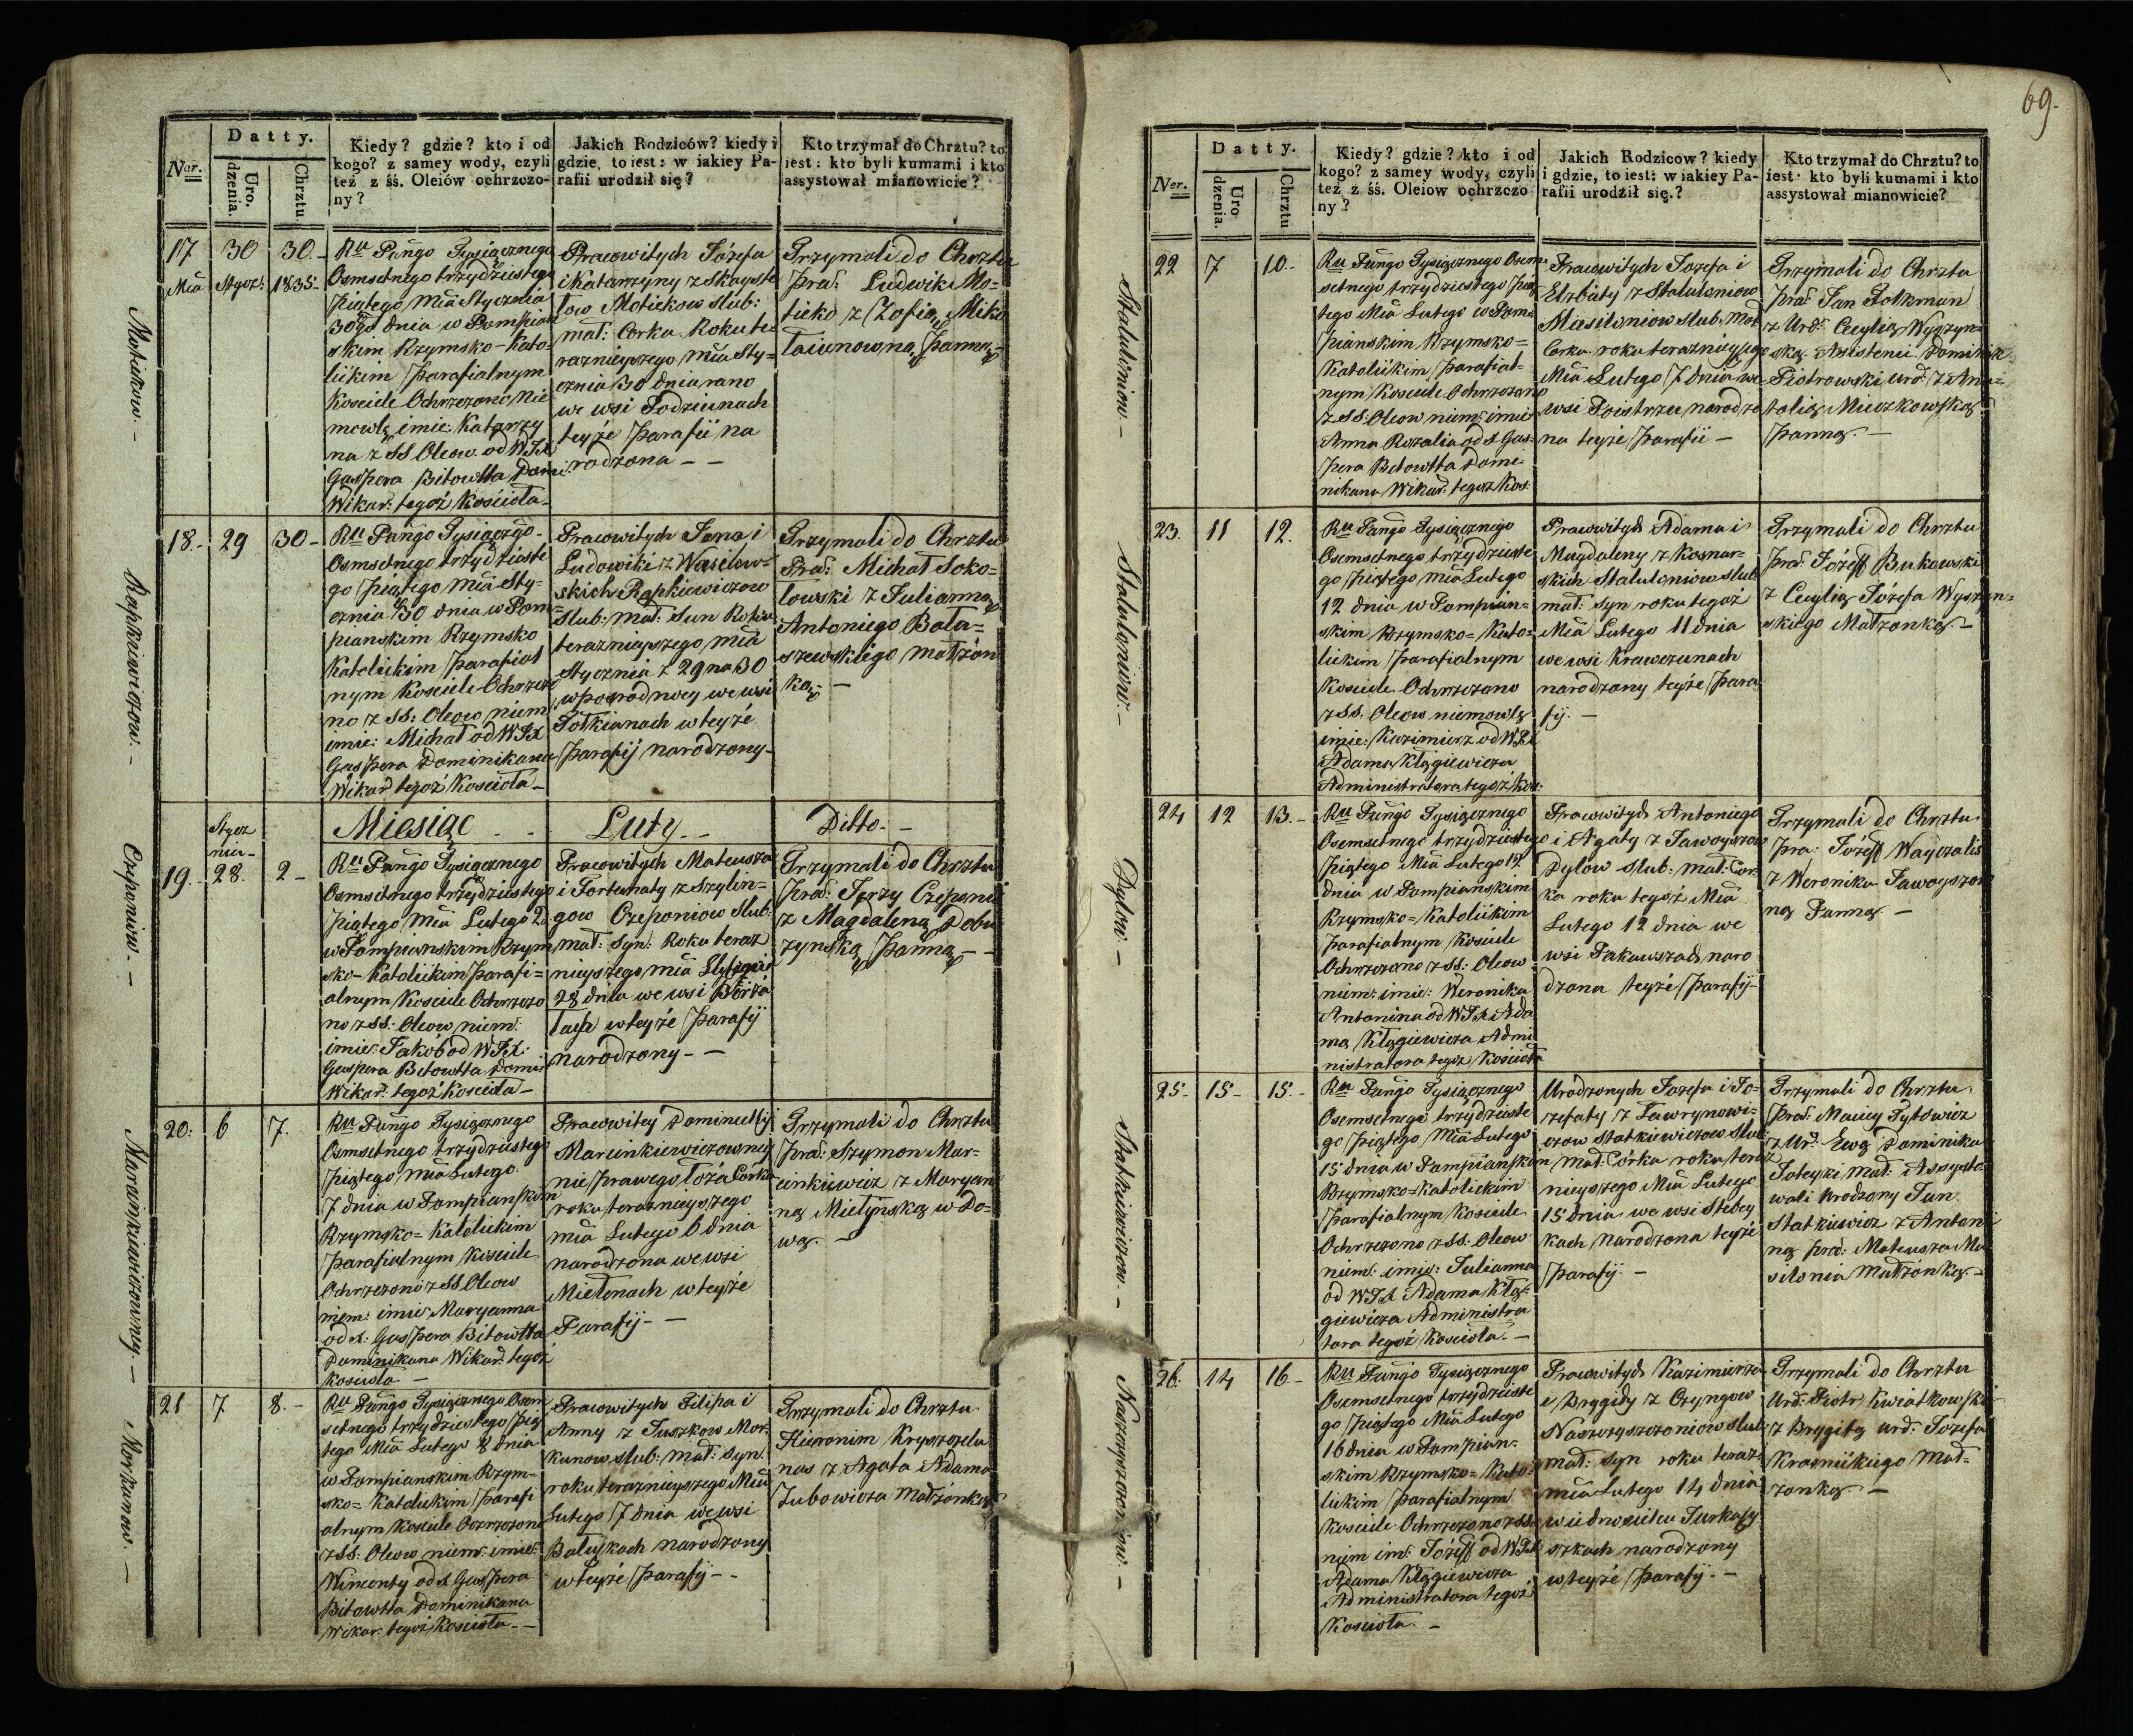 69.
Datty.
Ner.
Uro.
dzenia.
Chrztu.
Kiedy? gdzie? kto i od
kogo? z samey wody, czyli
też z śś. Oleiów ochrzczo-
ny?
Jakich Rodziców? kiedy i
gdzie, to iest: w iakiey Pa-
rafii urodził się?
Kto trzymał do Chrztu? to
iest: kto byli kumami i kto
assystował mianowicie?
17
Mca
30
Stycz:
30.-
1835.-
Ru Pańgo Tysiącznego
Osmsetnego trzydziestego
piątego Mca Stycznia
30go dnia w Pompian
skim Rzymsko-Kato-
lickim parafialnym
Kosciele Ochrzczono Nie
mowlę imie: Katarzy
na z SS Oleow od WJX
Gaspera Bitowtta Domi
Wikar: tegoż Kościoła-
Pracowitych Józefa
i Katarzyny z Skayste
low Motiekow slub:
mał: Corka Roku te
raznieyszego mca Sty=
cznia 30 dnia rano
we wsi Podziunach
teyże parafii na
rodzona - -
Trzymali do Chrztu
prac: Ludwik Mo-
tieko z Zofią Miko
łaiunowną panną
Motiekow.-
18.-
29
30-
Ru Pańgo Tysiączgo-
Osmsetnego trzydzieste
go piątego Mca Sty-
cznia 30 dnia w Pom=
pianskim Rzymsko
Katolickim parafial
nym Kosciele Ochrzczo
no z SS: Oleow niem
imie: Michał od WJX
Gaspera Dominikana
Wikar tegoż Kościoła-
Pracowitych Jana i
Ludowiki z Wasilew=
skich Rapkiewiczow
Slub: mał: Sun Roku
teraznieyszego mca
Stycznia z 29 na 30
w posrod nocy we wsi
Połkianach w teyże
parafij narodzony-
Trzymali do Chrztu
Prac: Michał Soko=
lowski z Julianną
Antoniego Bała=
szewskiego małżon
ką -
Rapkiewiczow.-
Miesiąc - -
Luty -
Ditto.-
19.-
Stycz
nia-
28.
2-
Ru Pańgo Tysiącznego
Osmsetnego trzydziestego
piątego Mca Lutego 2
w Pompianskim Rzym
sko-Katolickim parafi=
alnym Kosciele Ochrzczo
no z SS: Oleow niem:
imie: Jakób od WJX.
Gaspera Bitowtta Domi
Wikar: tegoż Kościoła-
Pracowitych Mateusza
i Fortunaty z Szylin=
gow Czeponiow Slub:
mał: Syn: Roku teraz
nieyszego mca Stycznia
28 dnia we wsi Birża
łach w teyże parafij
narodzony - -
Trzymali do Chrztu
prac: Jerzy Czeponis
z Magdaleną Dobu
żynską panną - -
Czeponiow.-
20:
6
7.
Ru Pańgo Tysiącznego
Osmsetnego trzydziestego
piątego mca Lutego
7 dnia w Pompianskim
Rzymsko=Katolickim
parafialnym Kosciele
Ochrzczono z SS Oleow
niem: imie Maryanna
od X: Gaspera Bitowtta
Dominikana Wikar: tegoż
Kościoła -
Pracowitey Dominelly
Marcinkiewiczowney
nie prawego Łoża Córka
roku teraznieyszego
mca Lutego 6 dnia
narodzona we wsi
Mielonach w teyże
Parafij- -
Trzymali do Chrztu
prac: Szymon Mar=
cinkiewicz z Maryan
ną Mielyńską wDo=
wą. -
Marcinkiewiczowny.-
21
7
8.-
Ru Pańgo Tysiącznego Osm
setnego trzydziestego pią
tego Mca Lutego 8 dnia
w Pompianskim Rzym=
sko=Katolickim parafi
alnym Kosciele Ochrzczono
z SS: Oleow niem: imie:
Wincenty od X Gaspera
Bitowtta Dominikana
Wikar: tegoż Kościoła.-
Pracowitych Filipa i
Anny z Juszkow Mor=
kunow slub: mał: Syn
roku teraznieyszego Mca
Lutego 7 dnia we wsi
Baluskach narodzony
w teyże parafij- -
Trzymali do Chrztu
Hieronim Kryszcelu
nas z Agata Adama
Jubowicza małżonką
Morkunow.-
Datty.
Ner.
Uro
dzenia.
Chrztu
Kiedy? gdzie? kto i od
kogo? z samey wody, czyli
też z śś. Oleiow ochrzczo
ny?
Jakich Rodzicow? kiedy
i gdzie, to iest: w iakiey Pa-
rafii urodził się.?
Kto trzymał do Chrztu? to
iest· kto byli kumami i kto
assystował mianowicie?
22
7
10.-
Ru Pańgo Tysiącznego Osem
setnego trzydziestego pią
tego Mca Lutego w Pom=
pianskim Rzymsko=
Katolickim parafial=
nym Kosciele Ochrzczono
z SS: Oleow niem: imie
Anna Rozalia od X Gas=
pera Bitowtta Domi-
nikana Wikar: tegoż Kos:
Pracowitych Jozefa i
Elzbiety z Staluloniow
Masiloniow slub: mał
Corka roku teraznieyszego
Mca Lutego 7 dnia we
wsi Poistrzu narodzo
na teyże parafii -
Trzymali do Chrztu
prac: Jan Połkman
z Urd: Cecylią Wyszyn=
ską Asistenci Dominik
Piotrowski urd: z Ana=
talią Mieczkowską
panną.-
Staluloniow-
23.
11
12.
Ru Pańgo Tysiącznego
Osemsetnego trzydzieste
go piątego mca Lutego
12 dnia w Pompian=
skim Rzymsko=Kato=
lickim parafialnym
Kosciele Ochrzczono
z SS. Oleow niemowlę
imie: Kazimierz od WJX
Adama Kłągiewicza
Administratora tegoż Kos:
Pracowitych Adama i
Magdaleny z Kosnar=
skich Staluloniow slub:
mał: Syn roku tegoż
Mca Lutego 11 dnia
we wsi Krawczunach
narodzony teyże para
fij.-
Trzymali do Chrztu
prac: Józeff Bukowski
z Cecylią Józefa Wyszyn=
skiego Małżonką.-
Staluloniow.-
24
12
13.-
Ru Pańgo Tysiącznego
Osemsetnego trzydziestego
piątego Mca Lutego 12
dnia w Pompianskim
Rzymsko=Katolickim
parafialnym Kosciele
Ochrzczono z SS: Oleow
niem: imie: Weronika
Antonina od WJX Ada
ma Kłągiewicza Admi
nistratora tegoż Kościoła
Pracowitych Antoniego
i Agaty z Jawoyszow
Dylow slub: mał: Cor
ka roku tegoż Mca
Lutego 12 dnia we
wsi Pakawszach naro
dzona teyże parafij-
Trzymali do Chrztu
pra: Józeff Wayczalis
z Weronika Jawoyszow
ną Panną -
Dylow.-
25-
15-
15.-
Ru Pańgo Tysiącznego
Osemsetnego trzydzieste
go piątego Mca Lutego
15 dnia w Pompianskim
Rzymsko=Katolickim
parafialnym Kosciele
Ochrzczono z SS. Oleow
niem: imie: Julianna
od WJX Adama Kłą=
giewicza Administra
tora tegoż Kościoła.-
Urodzonych Jozefa i Jo=
zefaty z Ławrynowi=
czow Statkiewiczow Slub:
mał: Córka roku teraz
nieyszego Mca Lutego
15 dnia we wsi Stebey
kach Narodzona teyże
parafij.-
Trzymali do Chrztu
prac: Maciey Tytowicz
z Ur: Ewą Dominika
Soteyki mał: Assysto
wali Urodzony Jan
Statkiewicz z Antoni
ną prac: Mateusza Ma
silonia małżonką.-
Statkiewiczow-
26:
14
16.-
Ru Pańgo Tysiącznego
Osemsetnego trzydzieste
go piątego Mca Lutego
16 dnia w Pompian=
skim Rzymsko=Kato=
lickim parafialnym
Kosciele Ochrzczono z SS:
niem im: Józeff od WJX
Adama Kłągiewicza
Administratora tegoż
Kościoła.-
Pracowitych Kazimierza
i Brygidy z Czyngow
Naszwyszczoniow slub:
mał: Syn roku teraz:
mca Lutego 14 dnia
w iednosielcu Jurkasy
szkach narodzony
w teyże parafij.-
Trzymali do Chrztu
Urd: Piotr Kwiatkowski
z Brygitą urd: Jozefa
Krasnickiego Mał=
żonką -
Naszwyszczoniow.-